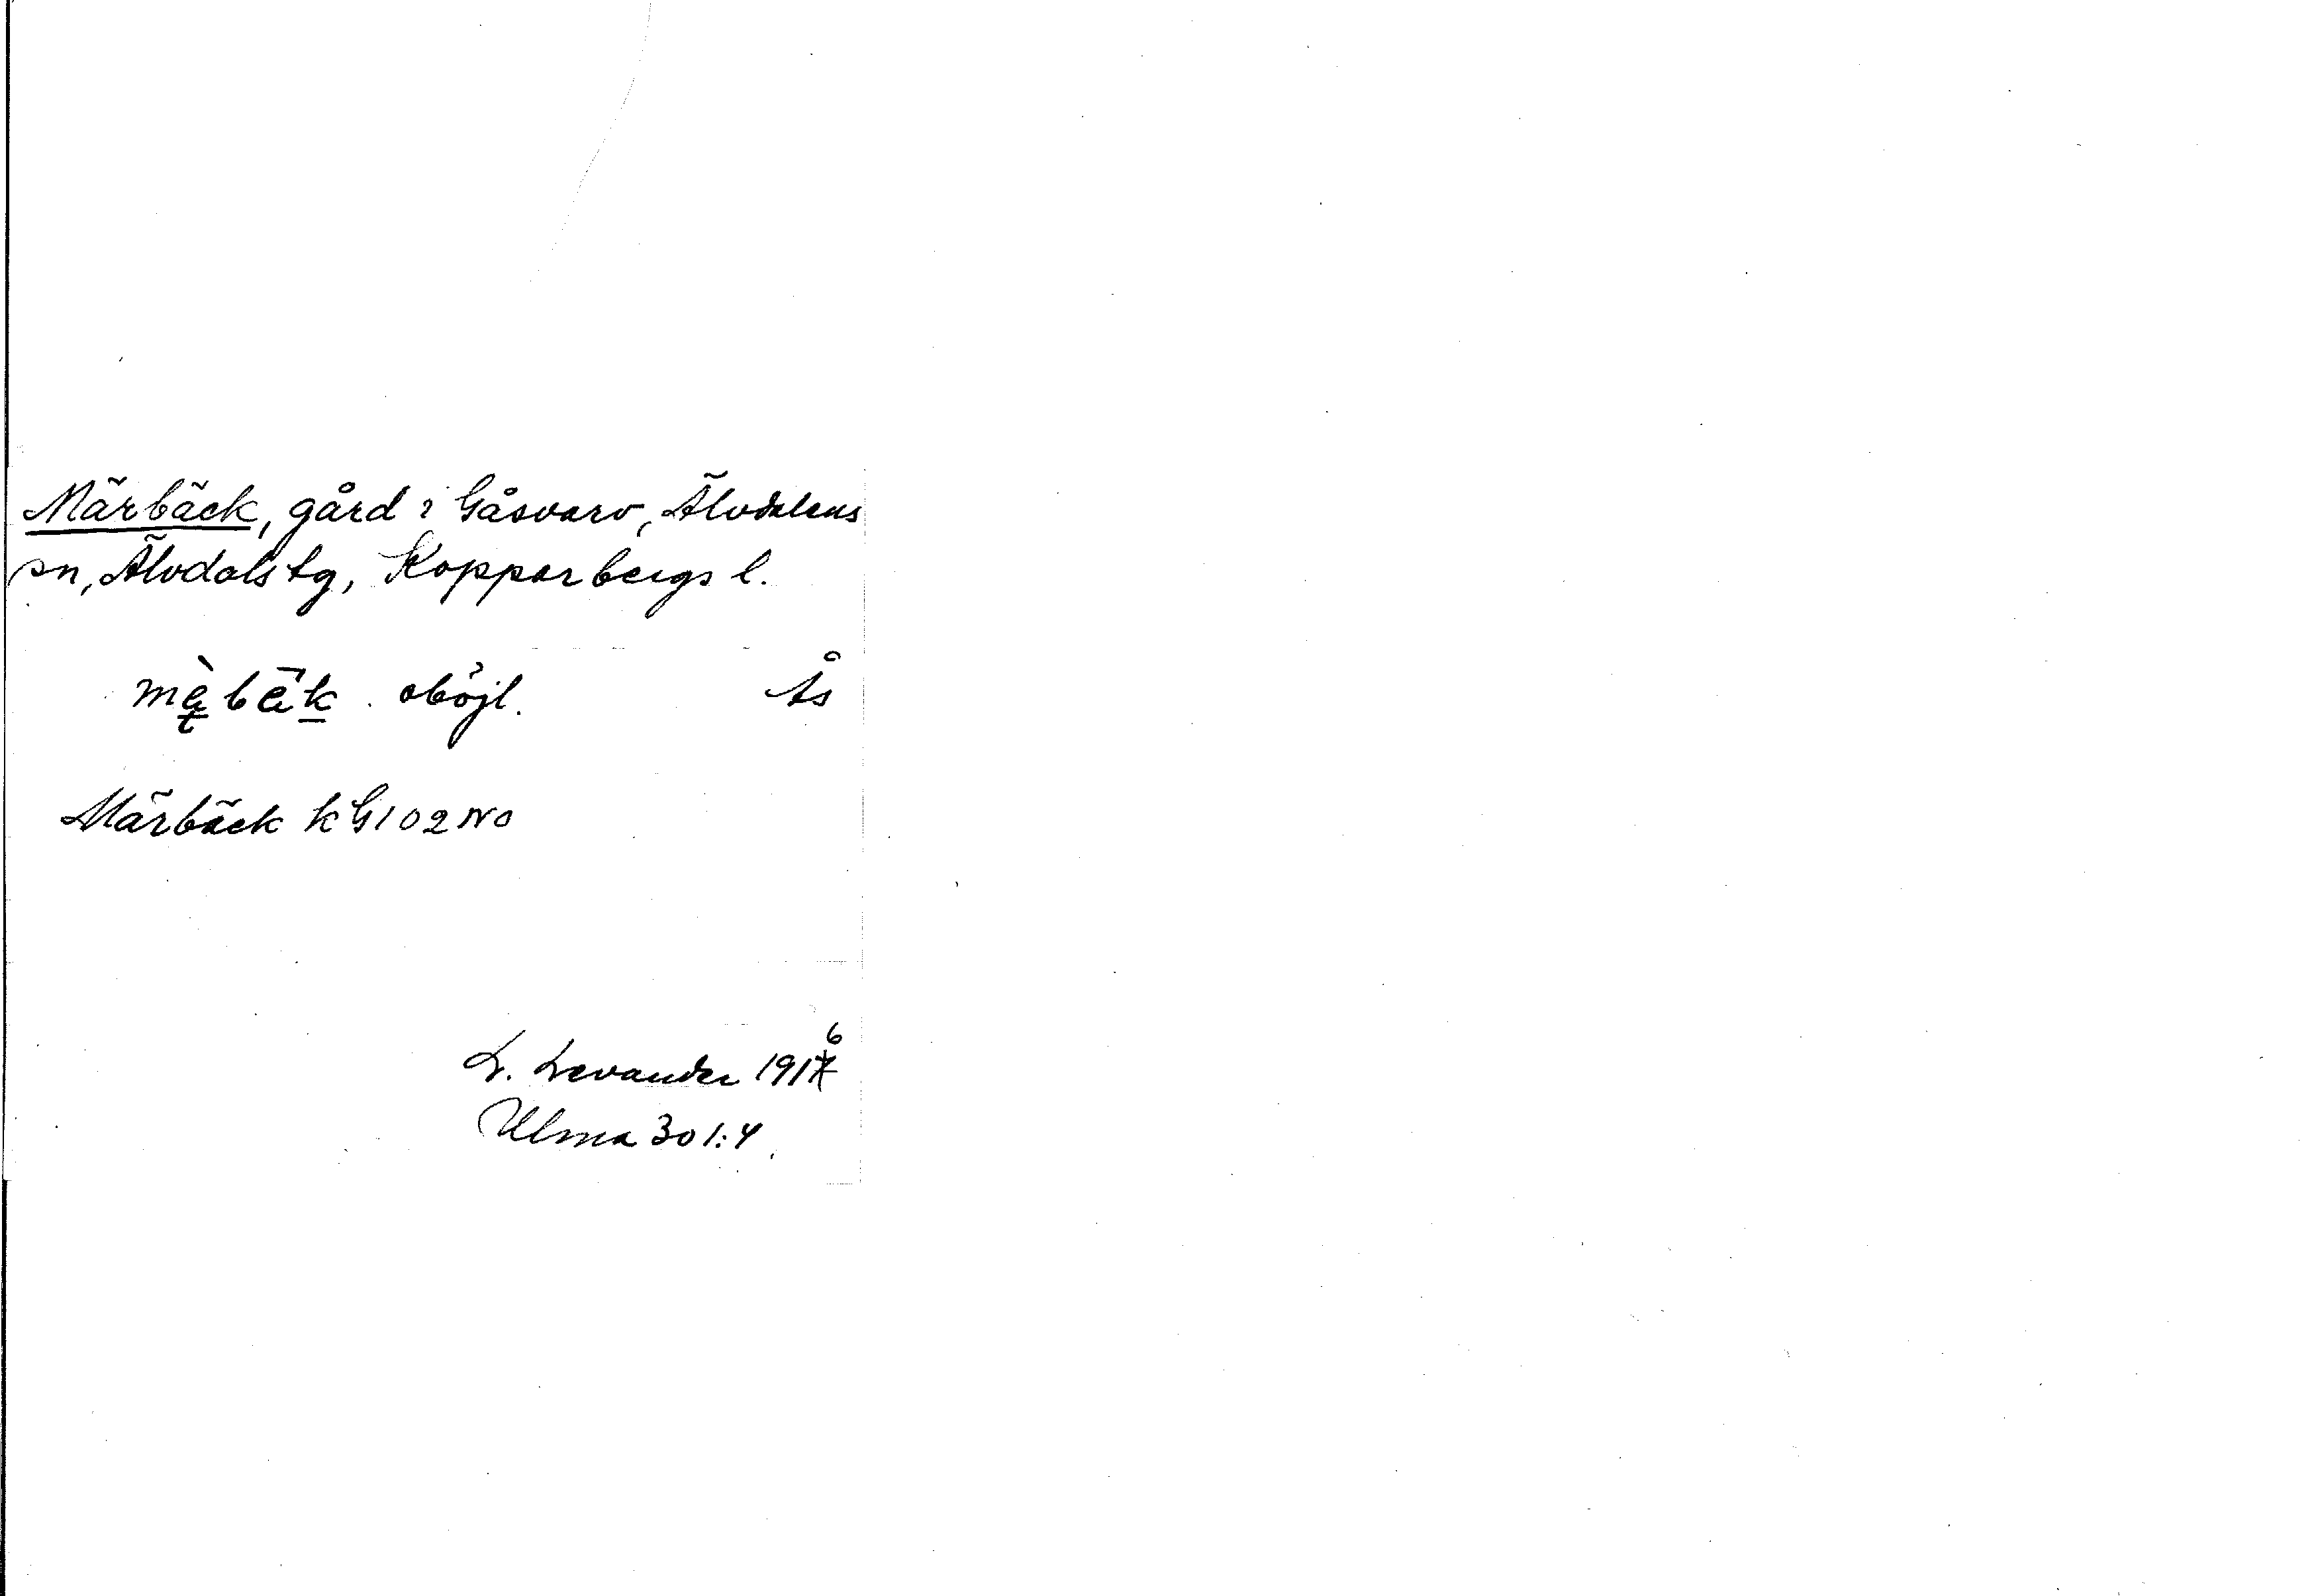 Märbäck, gård i Gåsvarv, Älvdalens
sn, Älvdals tg, Kopparbergs l.
mę̀bäk oböjl. Ås
Märbäck kG102NO
L. Levander 1916
Ulma 301:4